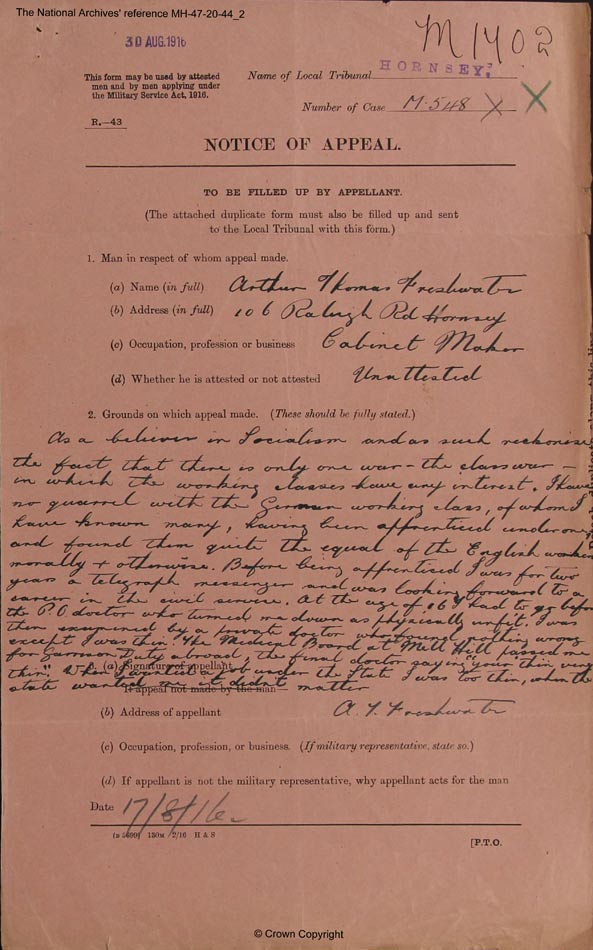 The National Archives' reference MH-47-20-44_2
30 AUG.1916
M1402
This form may be used by attested
men and by men applying under
the Military Service Act, 1916.
Name of Local Tribunal HORNSEY.
Number of Case M.548 X X
R.—43
NOTICE OF APPEAL.
TO BE FILLED UP BY APPELLANT.
(The attached duplicate form must also be filled up and sent
to the Local Tribunal with this form.)
1. Man in respect of whom appeal made.
(a) Name (in full) Arthur Thomas Freshwater
(b) Address (in full) 106 Raleigh Rd Hornsey
(c) Occupation, profession or business Cabinet Maker
(d) Whether he is attested or not attested Unattested
2. Grounds on which appeal made. (These should be fully stated.)
As a believer in Socialism and as such reckonise
the fact that there is only one war - the class war -
in which the working classes have any interest. I have
no quarrel with the German working class, of whom I
have known many, having been apprenticed under one
and found them quite the equal of the English worker
morally + otherwise. Before being apprenticed I was for two
years a telegraph messenger and was looking forward to a
career in the civil service. At the age of 16 I had to go before
the P.O doctor who turned me down as physically unfit. I was
then examined by a private doctor who found nothing wrong
except I was thin. The Medical Board at Mill Hill passed me
for Garrison Duty abroad, the final doctor saying "your thin very
thin." When I wanted a job under the State I was too thin, when the
state wanted me it didnt matter
3. (a) Signature of appellant
if appeal not made by the man
A. T. Freshwater
(b) Address of appellant
(c) Occupation, profession, or business. (If military representative, state so.)
(d) If appellant is not the military representative, why appellant acts for the man
Date 17/8/16
(B 5899) 150M 2/16 H & S
[P.T.O.
© Crown Copyright